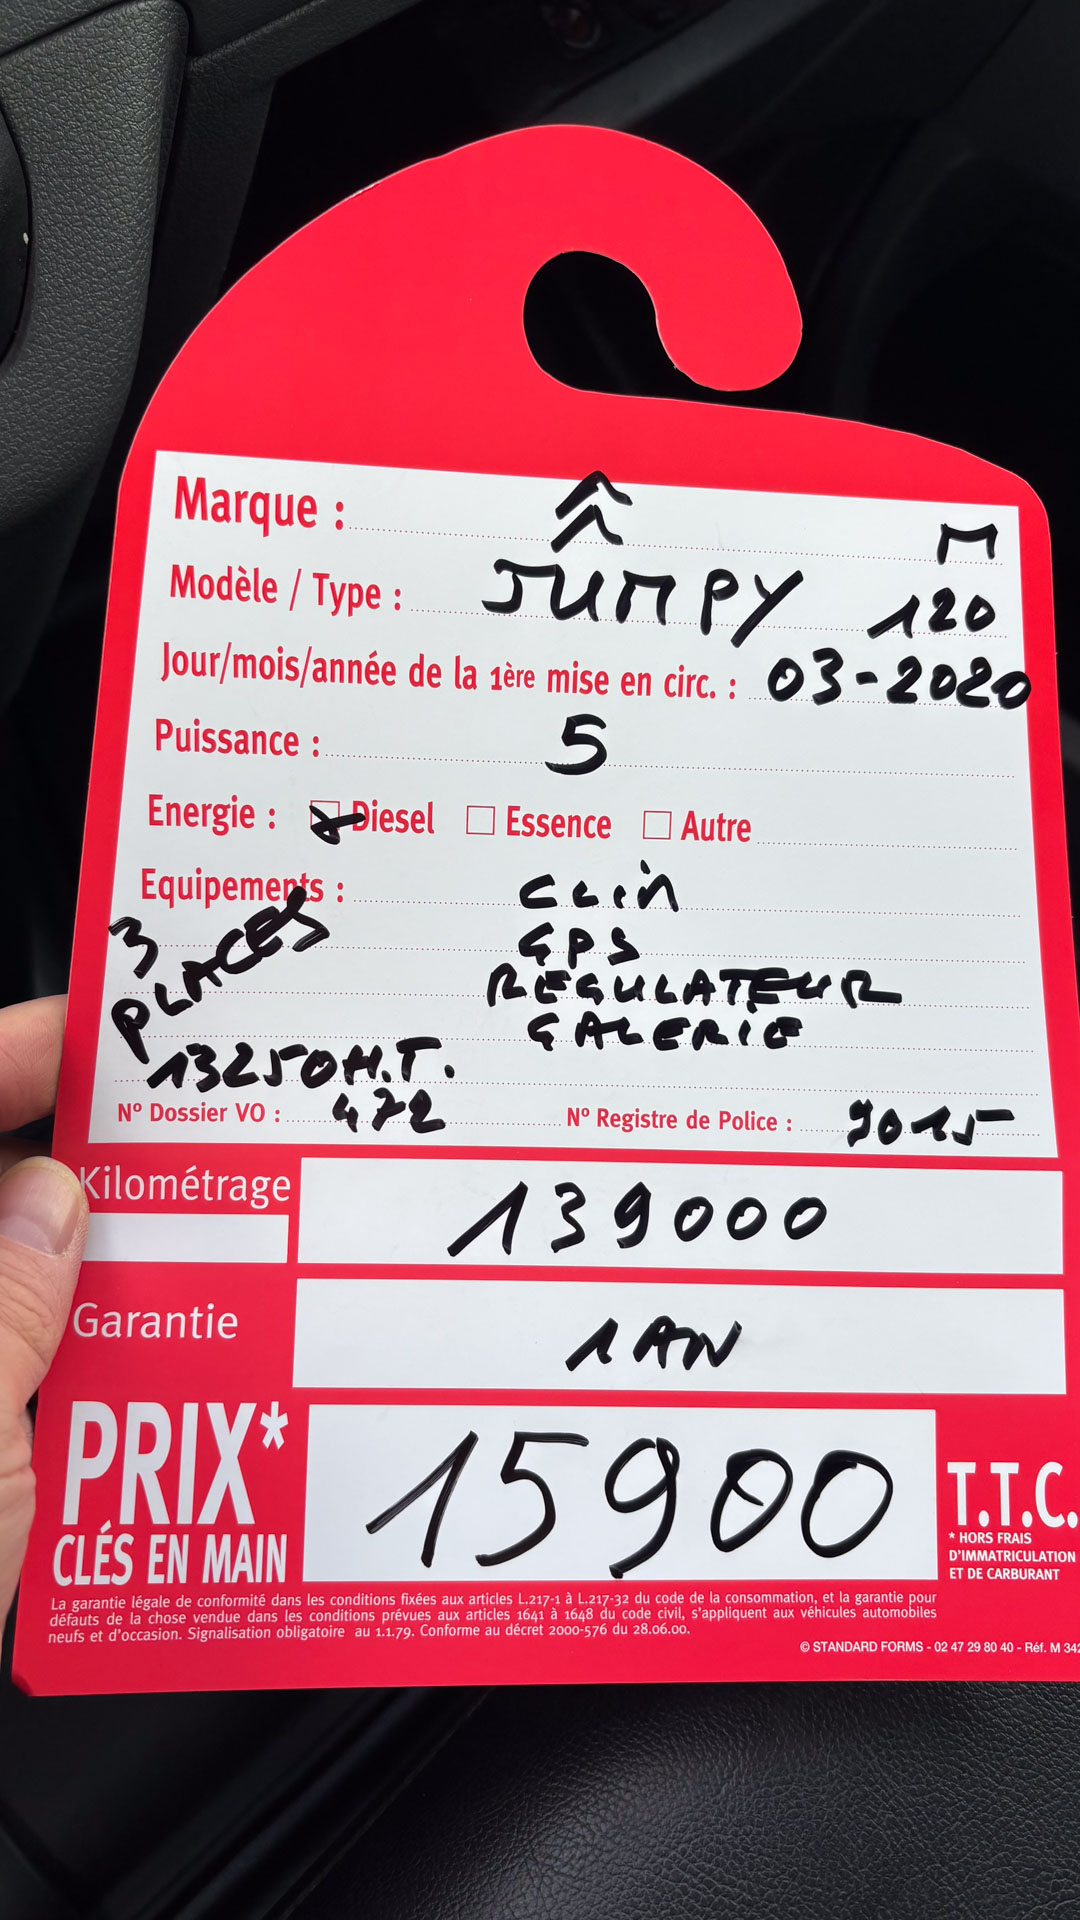 Marque :
M
Modèle / Type : JUMPY 120
Jour/mois/année de la 1ère mise en circ. : 03-2020
Puissance : 5
Energie : Diesel Essence Autre
Equipements : CLIM
GPS
REGULATEUR
GALERIE
3
PLACES
13250 H.T.
N° Dossier VO : 472 N° Registre de Police : 9015
Kilométrage 139000
Garantie 1 AN
PRIX* 15900 T.T.C.
CLÉS EN MAIN
* HORS FRAIS
D'IMMATRICULATION
ET DE CARBURANT
La garantie légale de conformité dans les conditions fixées aux articles L.217-1 à L.217-32 du code de la consommation, et la garantie pour
défauts de la chose vendue dans les conditions prévues aux articles 1641 à 1648 du code civil, s'appliquent aux véhicules automobiles
neufs et d'occasion. Signalisation obligatoire au 1.1.79. Conforme au décret 2000-576 du 28.06.00.
© STANDARD FORMS - 02 47 29 80 40 - Réf. M 342